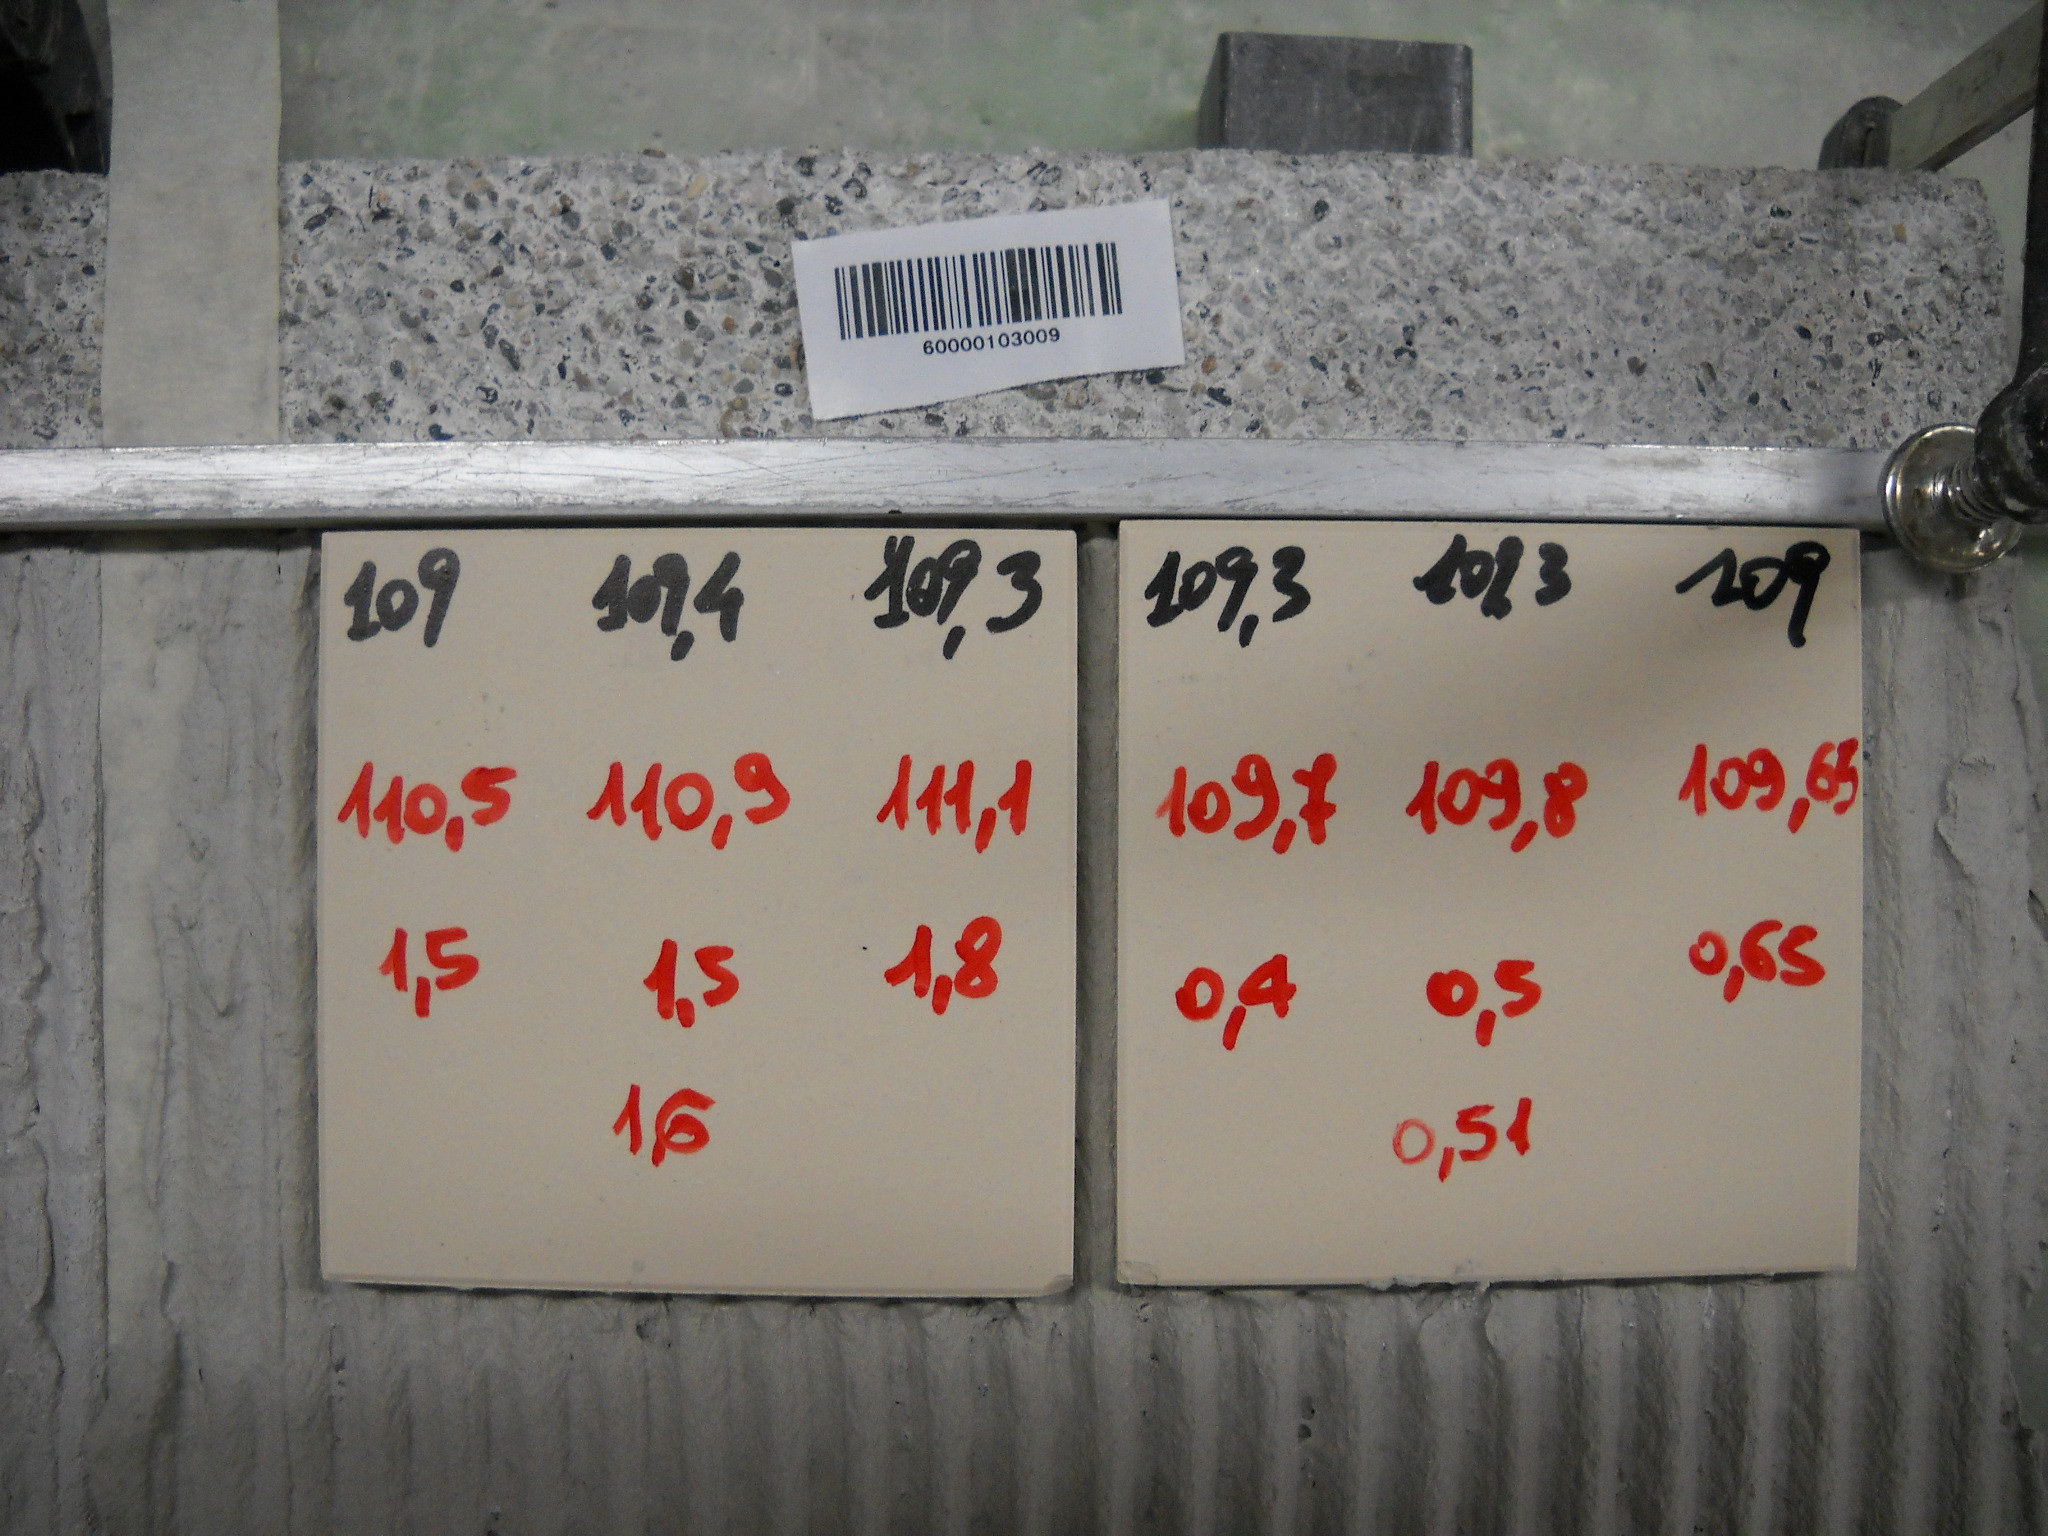 60000103009
109 109,4 109,3
110,5 110,9 111,1
1,5 1,5 1,8
1,6
109,3 109,3 109
109,7 109,8 109,65
0,4 0,5 0,65
0,51